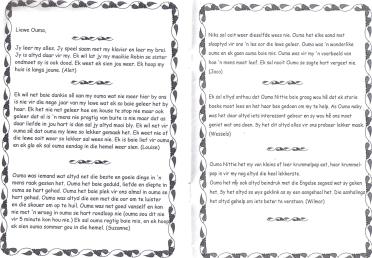 Liewe Ouma,
Jy leer my alles. Jy speel saam met my klavier en leer my brei.
Jy is altyd daar vir my. Ek wil lat jy my maatkie Robin se sister
ondmoet sy is ook dood. Ek weet ek sien jou weer. Ek hoop my
huis is langs joune. (Alet)
Ek wil net baie dankie sê aan my ouma wat nie meer hier by ons
is nie vir die nege jaar van my lewe wat ek so baie geleer het by
haar. Ek het nie net geleer hoe om kouse te stop nie maar ook
geleer dat al is 'n mens nie pragtig van buite is nie maar dat as
daar liefde in jou hart is dan sal jy altyd mooi bly. Ek wil net vir
ouma sê dat ouma my lewe so lekker gemaak het. Ek weet nie of
die lewe ooit weer so lekker sal wees nie. Ek is baie lief vir ouma
en ek glo ek sal ouma eendag in die hemel weer sien. (Louise)
Ouma was iemand wat altyd net die beste en goeie dinge in 'n
mens raak gesien het. Ouma het baie geduld, liefde en diepte in
ouma se hart gehad. Ouma het baie plek vir ons almal in ouma se
hart gehad. Ouma was altyd die een met die oor om te luister
en die skouer om op te huil. Ouma was net goed vanself en kon
nie met 'n wrang in ouma se hart rondloop nie (ouma sou dit nie
vir 5 minute kon hou nie.) Ek sal ouma regtig baie mis, en ek hoop
ek sien ouma sommer gou in die hemel. (Suzanne)
Niks sal ooit weer dieselfde wees nie. Ouma het elke aand met
slaaptyd vir ons 'n les oor die lewe geleer. Ouma was 'n wonderlike
ouma en ek gaan ouma baie mis. Ouma was vir my 'n voorbeeld van
hoe 'n mens moet leef. Ek sal nooit Ouma se sagte hart vergeet nie.
(Jaco)
Ek sal altyd onthou dat Ouma Nittie baie graag wou hê dat ek storie
boeke moet lees en het haar bes gedoen om my te help. As Ouma naby
was het daar altyd iets interessant gebeur en sy was hê ons moet
geniet wat ons doen. Sy het dit altyd alles vir ons probeer lekker maak.
(Wessels)
Ouma Nittie het my van kleins af leer krummelpap eet, haar krummel-
pap is vir my nog altyd die heel lekkerste.
Ouma het my ook altyd beindruk met die Engelse segoed wat sy geken
het. Sy het altyd as sy gekkink as sy een aangehaal het. Die aanhalings
het altyd gehelp om iets beter te verstaan. (Wilmar)